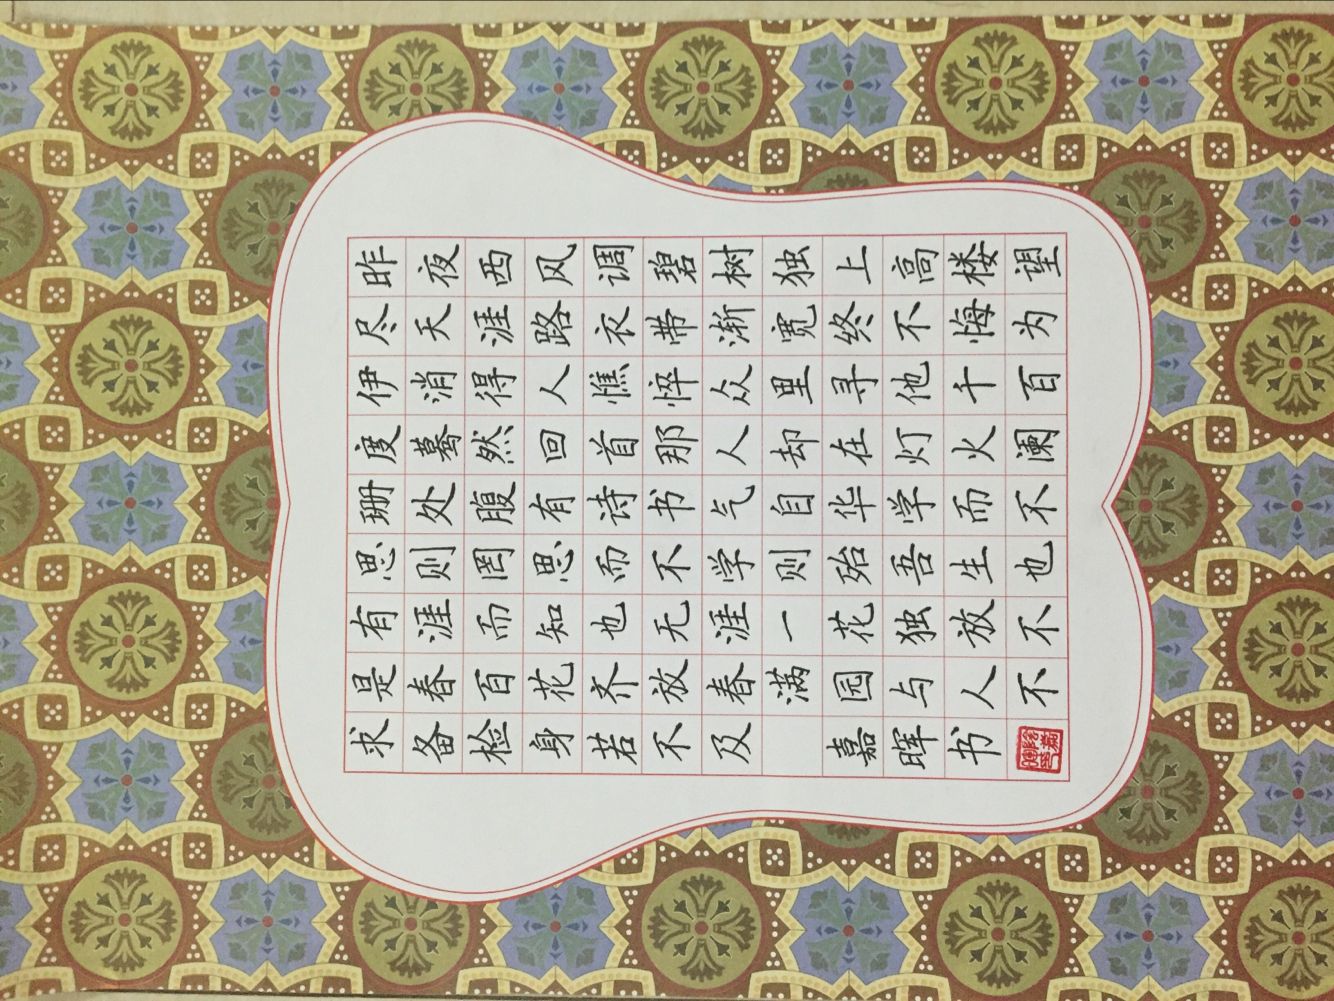 昨夜西风调碧树独上高楼望
尽天涯路衣带渐宽终不悔为
伊消得人憔悴众里寻他千百
度蓦然回首那人却在灯火阑
珊处腹有诗书气自华学而不
思则罔思而不学则殆吾生也
有涯而知也无涯一花独放不
是春百花齐放春满园与人不
求备检身若不及 嘉晖书